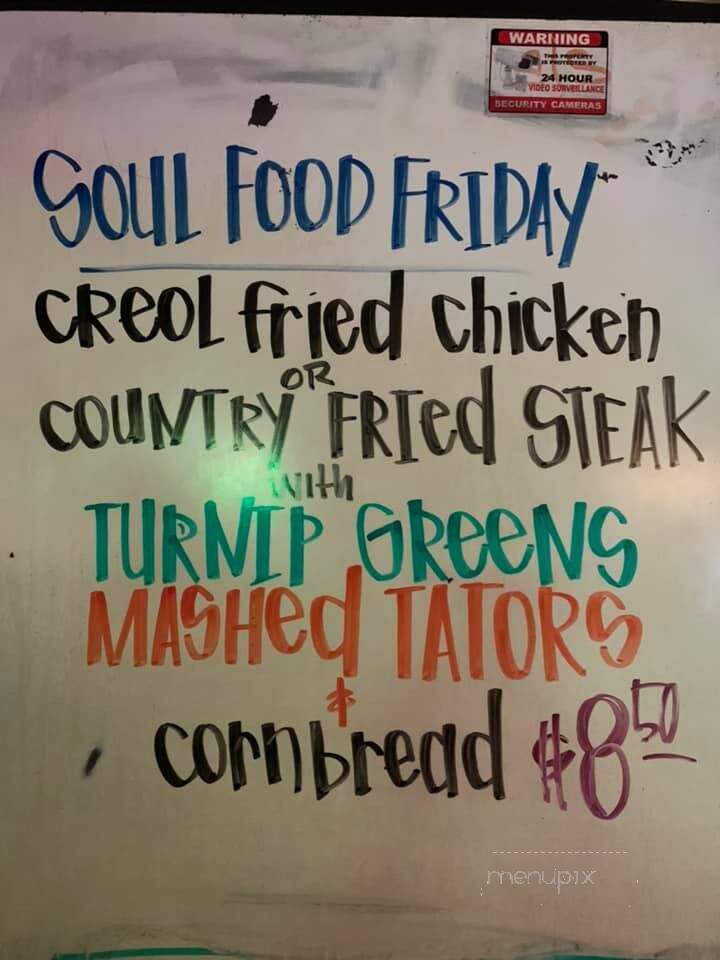 WARNING
THIS PROPERTY
IS PROTECTED BY
24 HOUR
VIDEO SURVEILLANCE
SECURITY CAMERAS
SOUL FOOD FRIDAY
CREOL fried chicken
OR
COUNTRY FRIed STEAK
with
TURNIP GReeNS
MASHed TATORS
&
cornbread $8.50
menupix